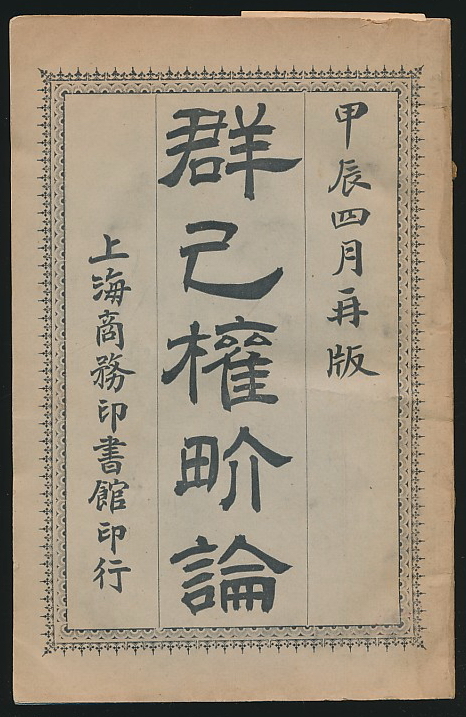 甲辰四月再版
群己權畍論
上海商務印書館印行